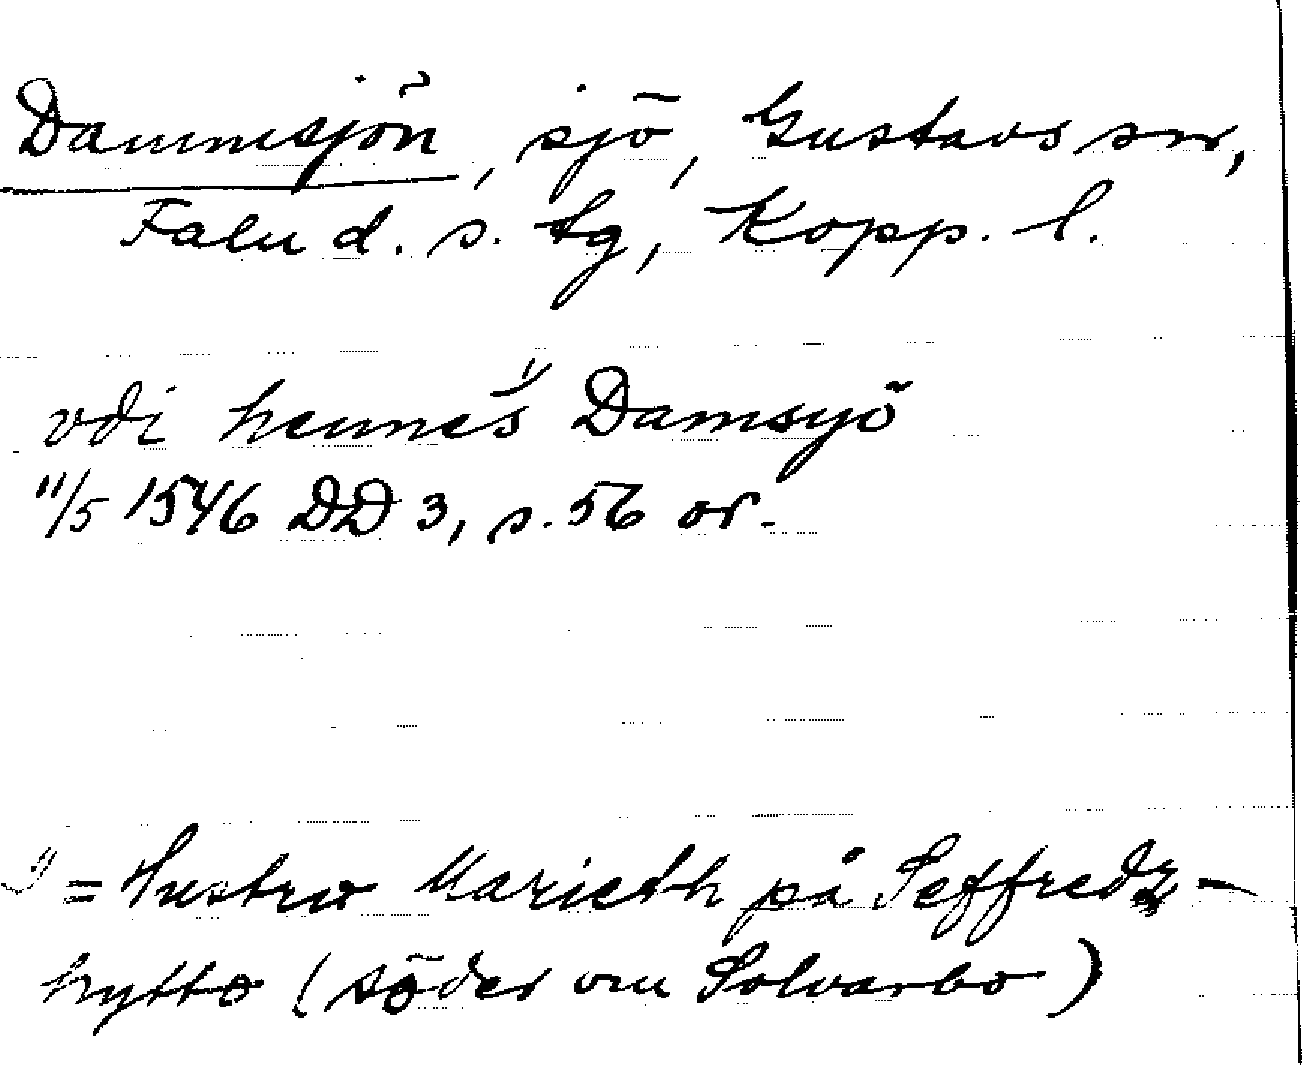 Dammsjön, sjö, Gustavs sn,
Falu d. s. tg, Kopp. l.
vdi hennes ¹⁾ Damsyö
11/5 1546 DD 3, s. 56 or.
¹⁾ = Hustrw Marieth på Seffredz-
hytto (söder om Solvarbo)